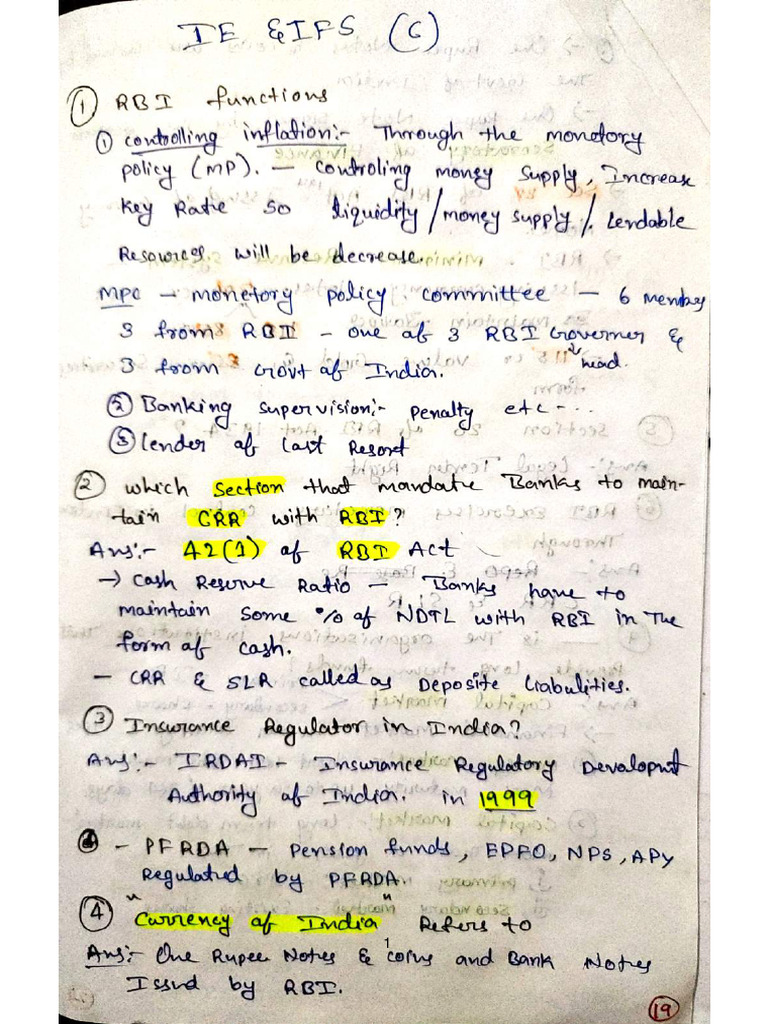 IE & IFS (6)
① RBI functions
① controlling inflation:- Through the monetory
policy (MP). — controling money supply, Increase
key Ratie so liquidity/money supply/Lendable
Resources will be decrease.
MPC — monetory policy committee — 6 members
3 from RBI — one of 3 RBI Governer &
3 from Govt of India. head.
② Banking supervision:- penalty etc-...
③ lender of last Resort
② which section that mandate Banks to main-
tain CRR with RBI?
Ans:- 42(1) of RBI Act
→ Cash Reserve Ratio — Banks have to
maintain some % of NDTL with RBI in The
form of cash.
— CRR & SLR called as Deposite liabulities.
③ Insurance Regulator in India?
Ans:- IRDAI - Insurance Regulatory Developmt
Authority of India. in 1999
- PFRDA — Pension funds, EPFO, NPS, APY
Regulated by PFRDA
④ "Currency of India" Refers to
Ans:- One Rupee Notes & 1 coins and Bank Notes
Issud by RBI.
19